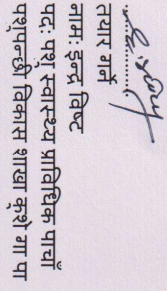 तयार गर्ने
नामः इन्द्र विष्ट
पदः पशु स्वास्थ्य प्राविधिक पाचौं
पशुपन्छी विकास शाखा कुशे गा पा